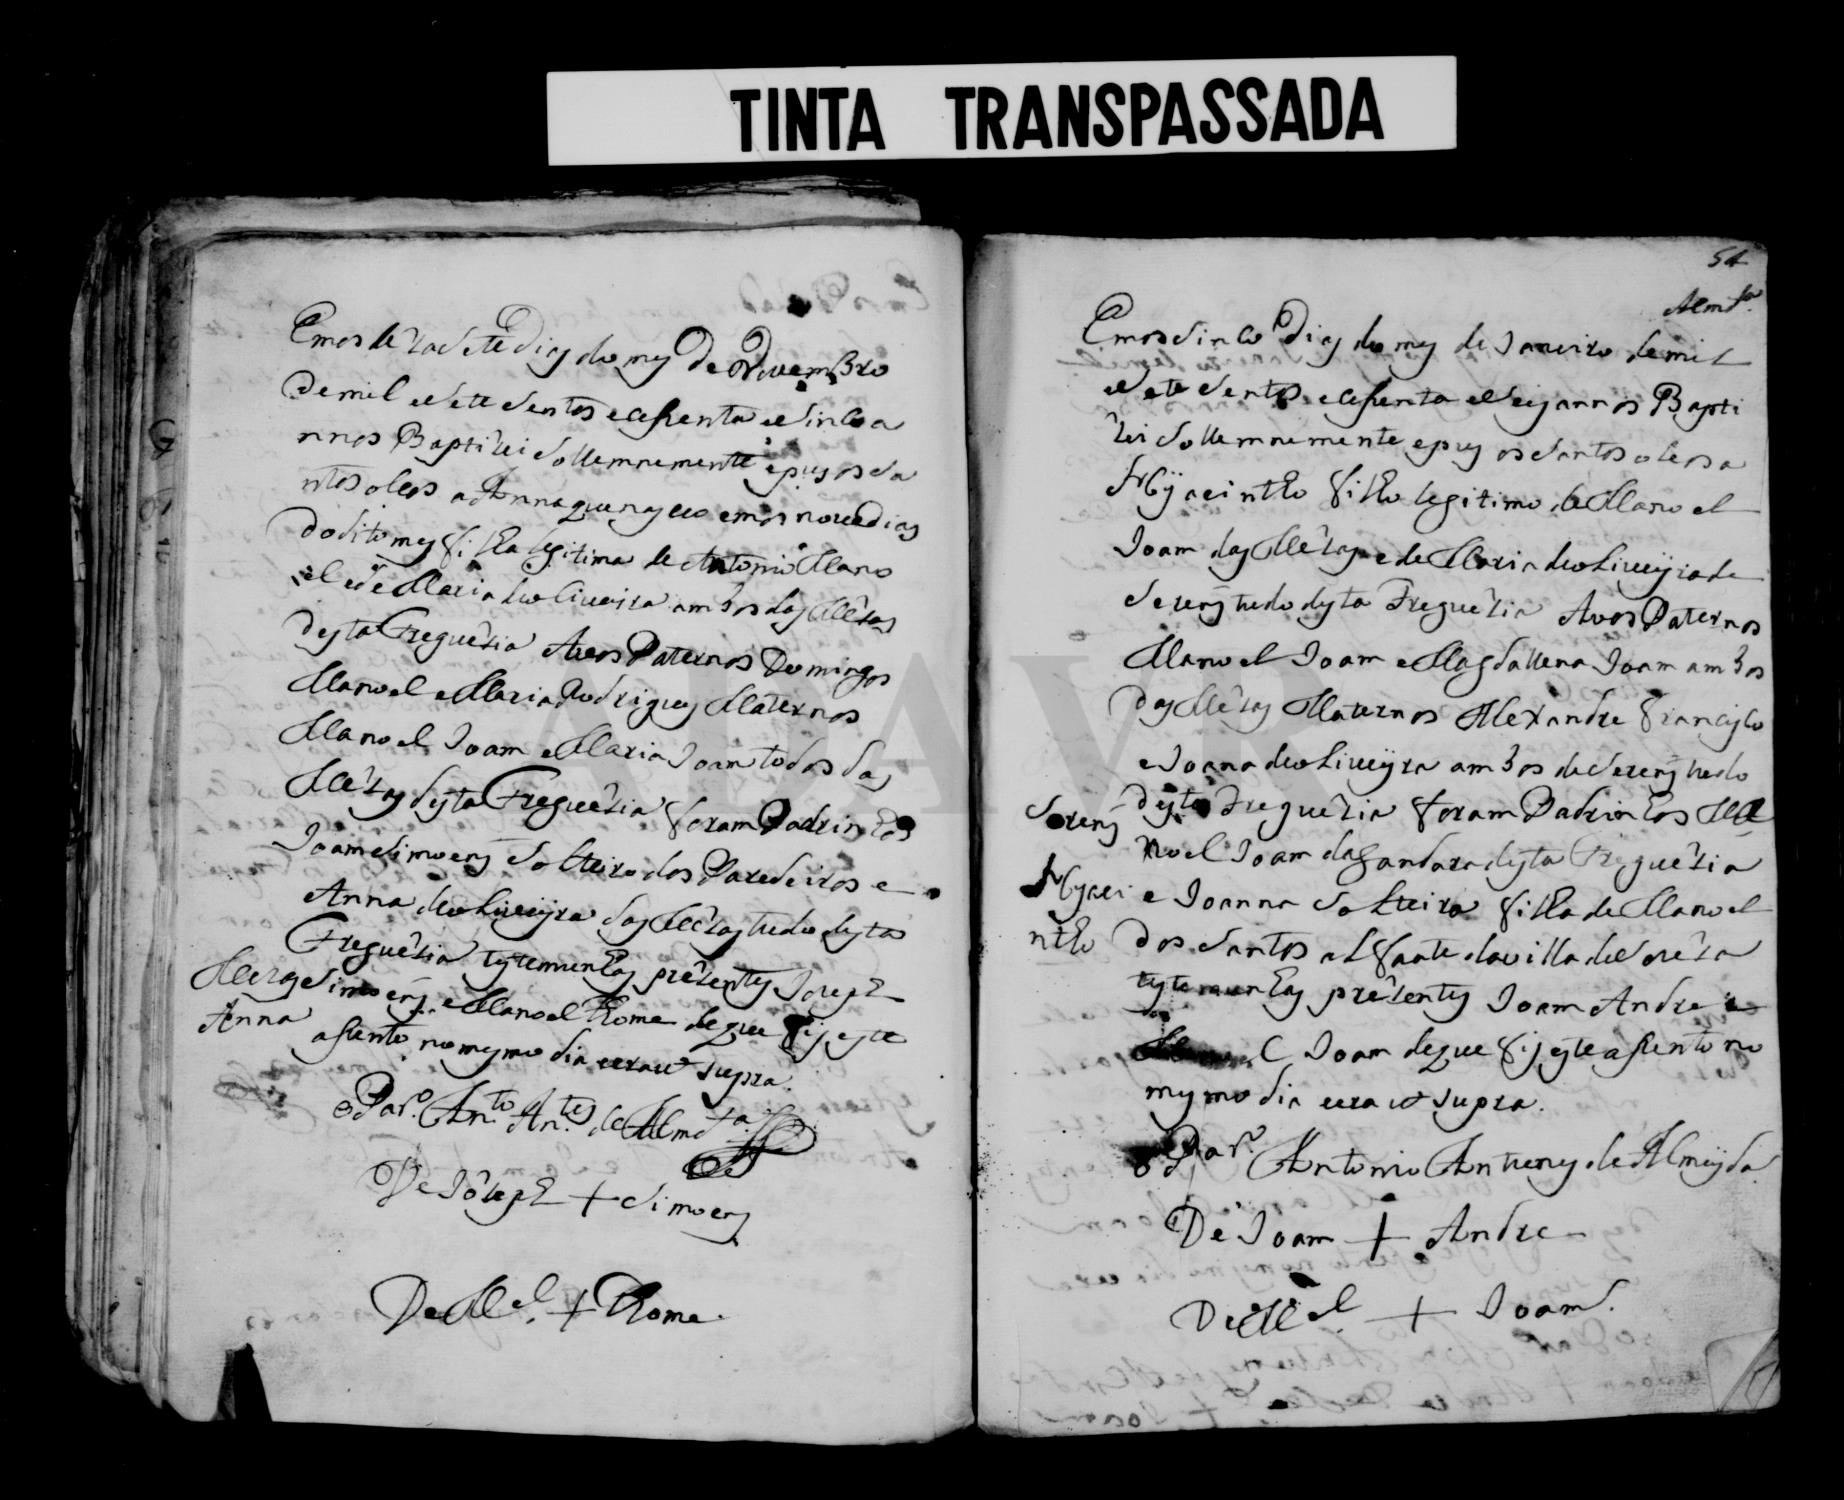 TINTA TRANSPASSADA
Em os dezasete Dias do mes De Novembro
De mil e sete sentos e cesenta e sinco a
nnos Baptizei sollemnemente e pus os sa
ntos oleos a Anna que nasceo em os nove Dias
Do dito mes filha legitima de Antonio Mano
el e de Maria de oliveyra ambos das Mezas
Desta Freguezia Avos Paternos Domingos
Manoel e Maria Rodrigues Maternos
Manoel Joam e Maria Joam todos das
Mezas desta Freguezia foram Padrinhos
Joam Simoens Solteiro dos Paredeiros e
Anna de oliveyra das Mezas tudo desta
Freguezia testemunhas prezentes Joseph
Mezas Simoens e Manoel Thome de que fis este
Anna asento no mesmo dia era ut supra.
o Par.º An.to An.tes de Almd.a
De Jozeph + Simoens
De M.el + Thome.
54
Almd.a
Em os sinco Dias do mes de Janeiro de mil
e sete sentos e cesenta e seis annos Bapti
zei sollemnemente e pus os santos oleos a
Hyacintho filho legitimo de Manoel
Joam das Mezas e de Maria de oliveyra de
Serens tudo desta Freguezia Avos Paternos
Manoel Joam e Magdallena Joam ambos
Das Mezas Maternos Alexandre Francisco
e Joanna de oliveyra ambos de Serens tudo
Desta Freguezia foram Padrinhos Ma
Sorens
noel Joam da Gandara desta Freguezia
Hyaci
ntho
e Joanna Solteira filha de Manoel
Dos Santos alfaate da villa de Soza
testemunhas prezentes Joam Andre e
Joam de que fis este asento no
mesmo dia era ut supra.
o Par.º Antonio Antunes de Almeyda
De Joam + Andre
De M.el + Joam.